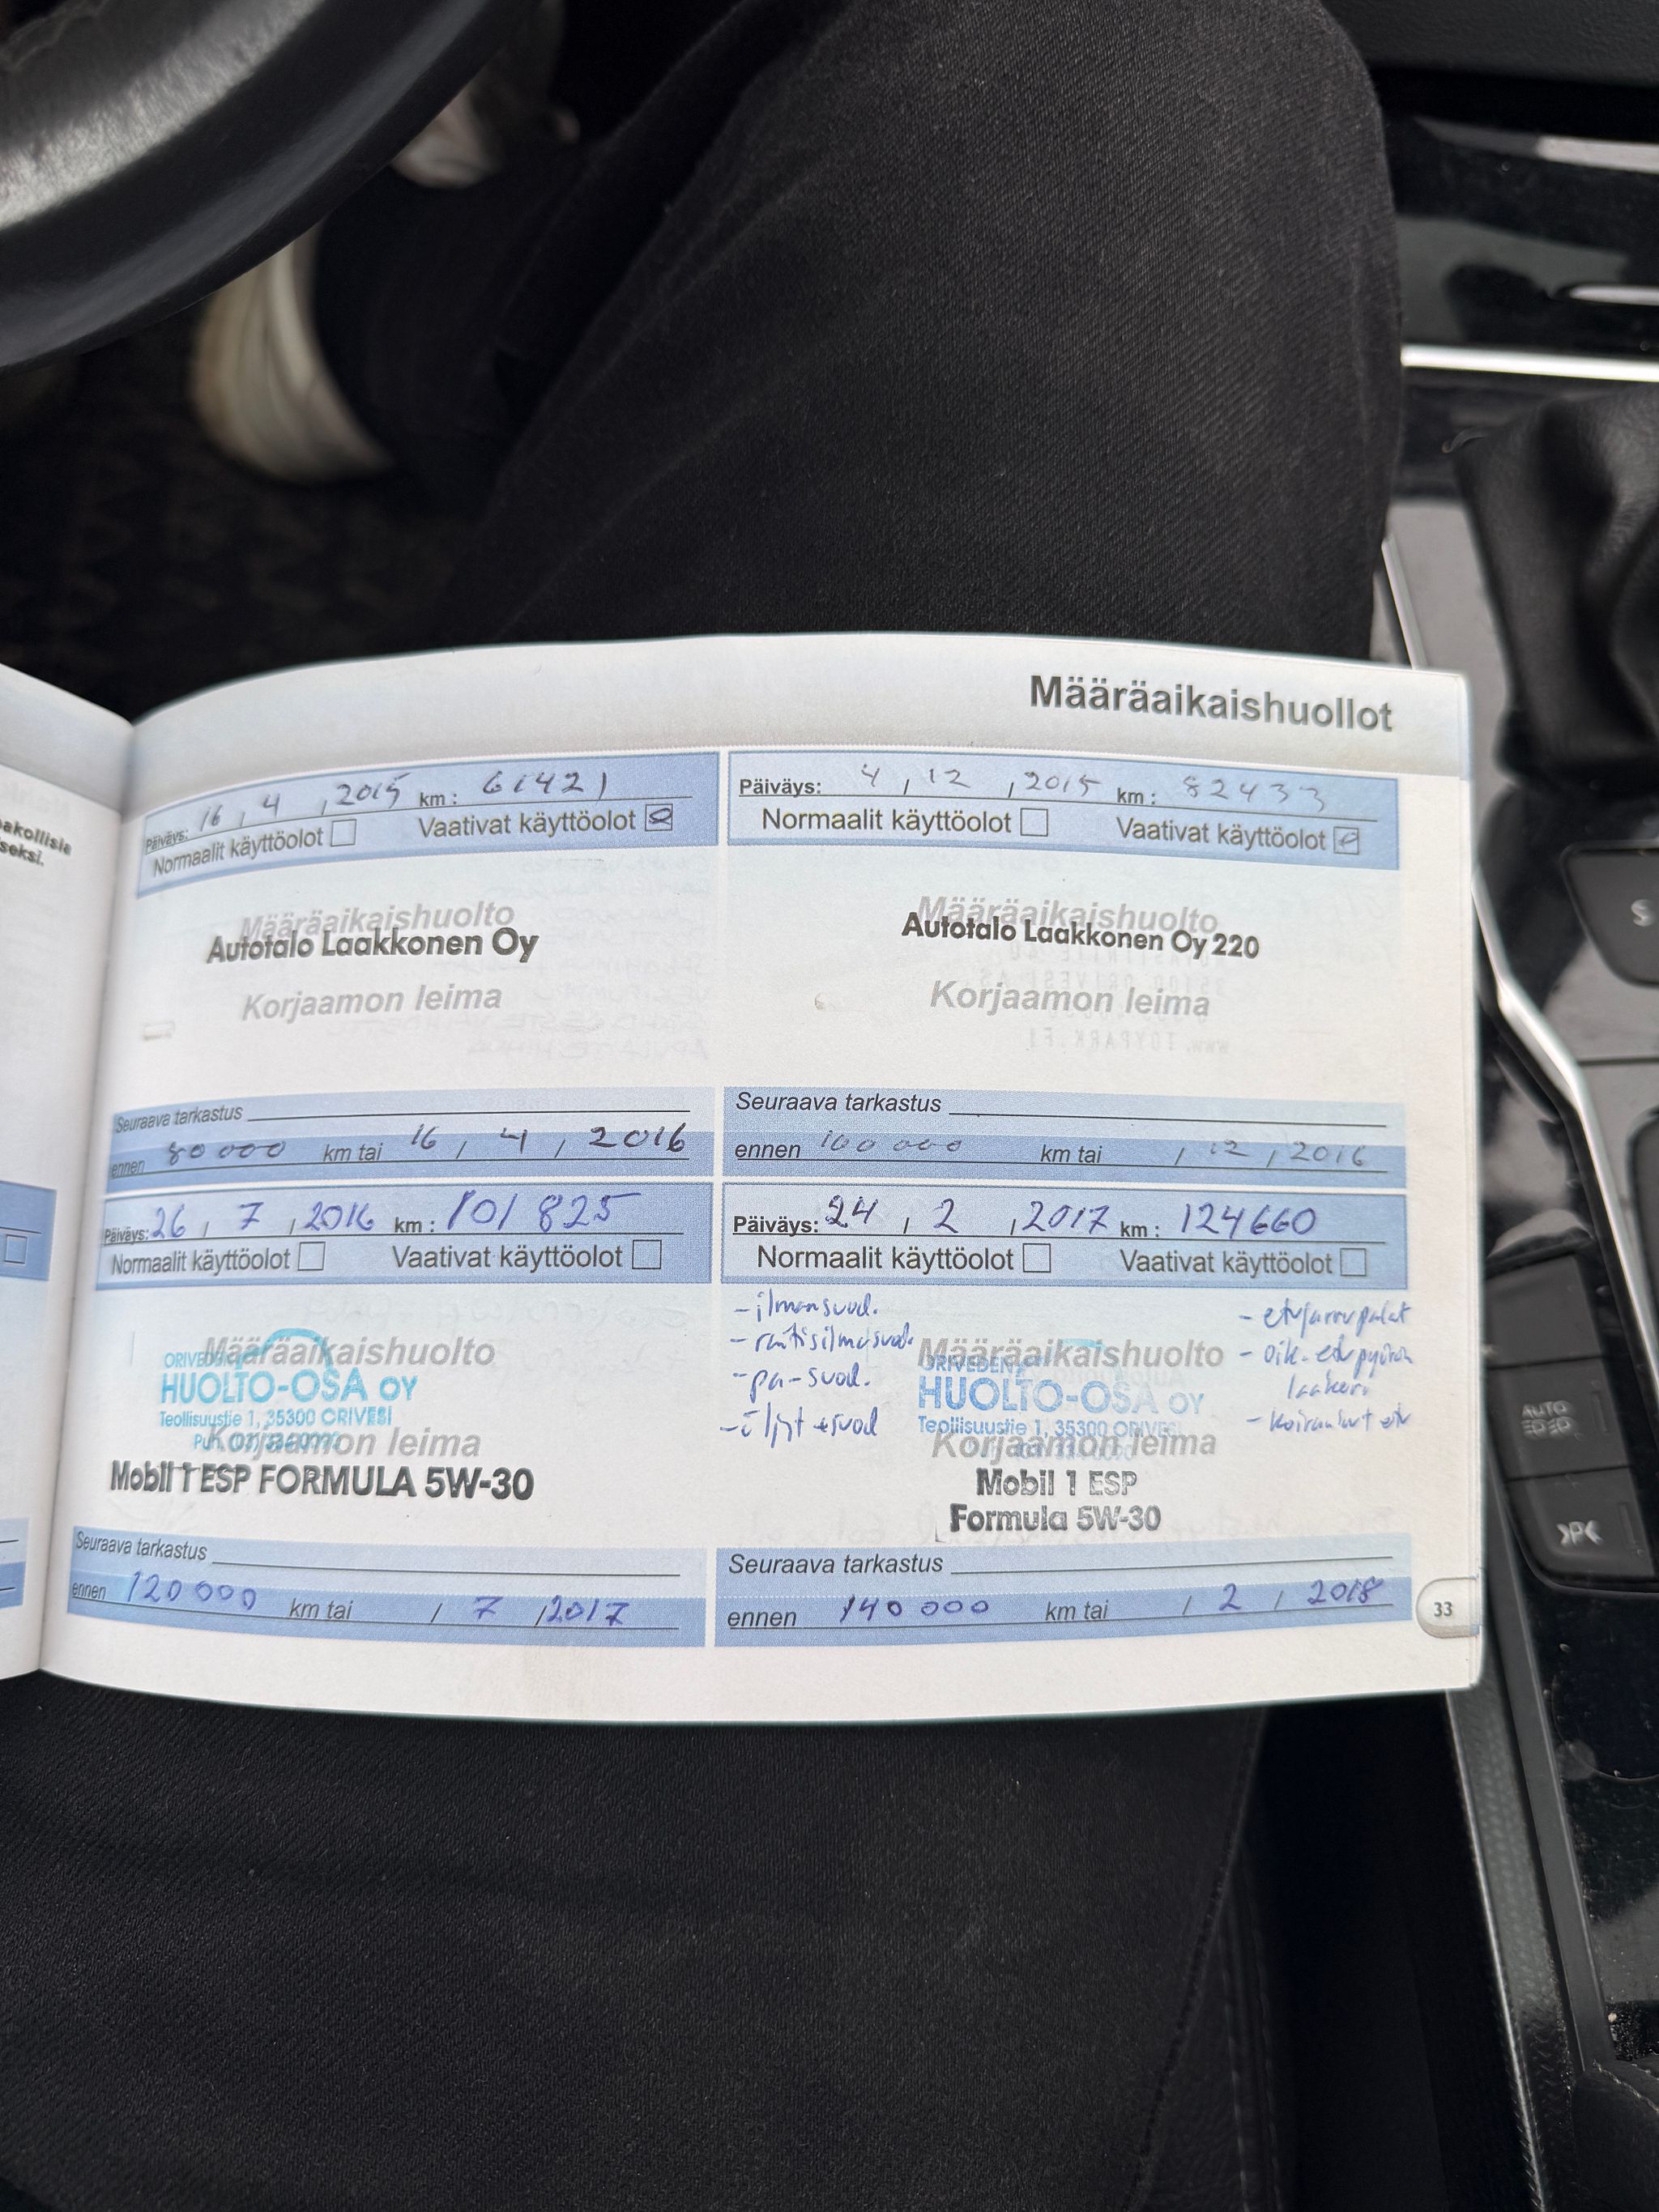 Määräaikaishuollot
akollisia
seksi.
Päiväys: 16 , 4 , 2015 km : 61421
Normaalit käyttöolot Vaativat käyttöolot
Määräaikaishuolto
Autotalo Laakkonen Oy
Korjaamon leima
Seuraava tarkastus
ennen 80 000 km tai 16 / 4 / 2016
Päiväys: 4 , 12 , 2015 km : 82433
Normaalit käyttöolot Vaativat käyttöolot
Määräaikaishuolto
Autotalo Laakkonen Oy 220
Korjaamon leima
Seuraava tarkastus
ennen 100 000 km tai / 12 / 2016
Päiväys: 26 , 7 , 2016 km : 101 825
Normaalit käyttöolot Vaativat käyttöolot
Määräaikaishuolto
ORIVEDEN
HUOLTO-OSA OY
Teollisuustie 1, 35300 ORIVESI
Korjaamon leima
Mobil 1 ESP FORMULA 5W-30
Seuraava tarkastus
ennen 120 000 km tai / 7 / 2017
Päiväys: 24 , 2 , 2017 km : 124660
Normaalit käyttöolot Vaativat käyttöolot
- ilmansuod.
- raitisilmasuod.
- pa-suod.
- öljyt + suod
Määräaikaishuolto
ORIVEDEN
HUOLTO-OSA OY
Teollisuustie 1, 35300 ORIVESI
Korjaamon leima
Mobil 1 ESP
Formula 5W-30
- etujarrupalat
- oik. etupyörän
laakeri
- koiranluut etu
Seuraava tarkastus
ennen 140 000 km tai / 2 / 2018
33
S
AUTO
P